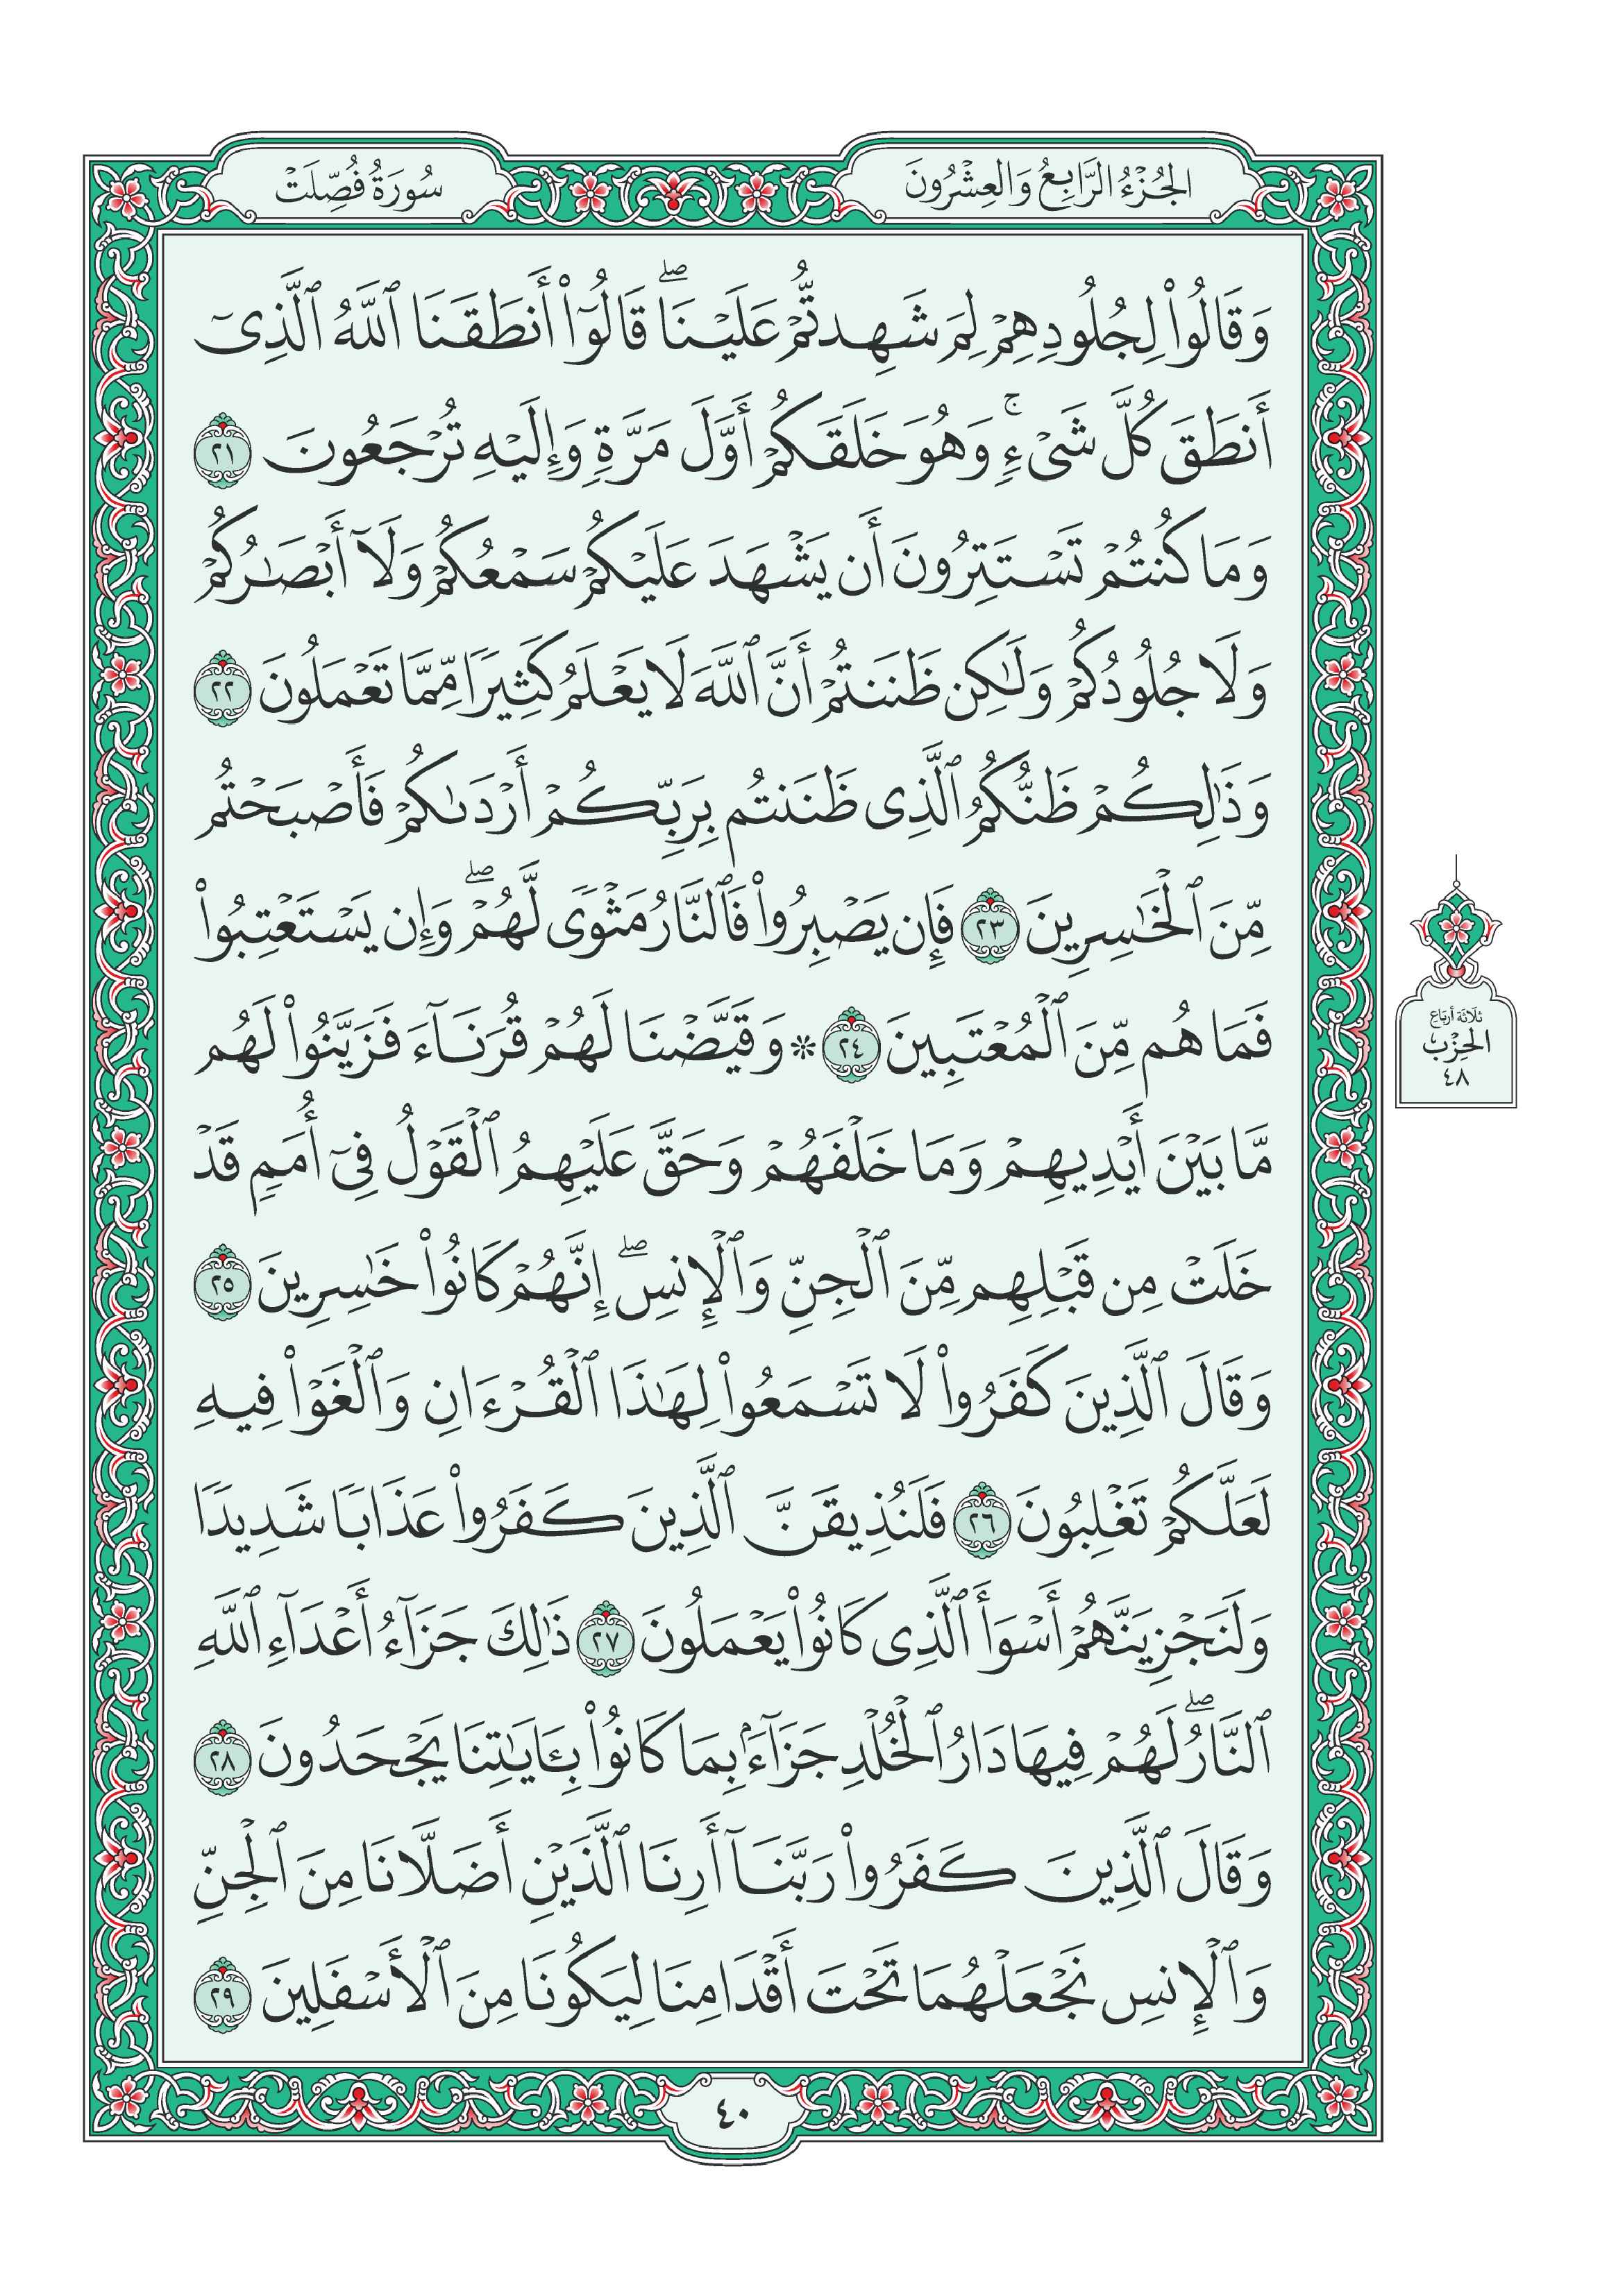 الجُزْءُ الرَّابِعُ وَالعِشْرُونَ
سُورَةُ فُصِّلَتْ
وَقَالُوا۟ لِجُلُودِهِمْ لِمَ شَهِدتُّمْ عَلَيْنَا ۖ قَالُوٓا۟ أَنطَقَنَا ٱللَّهُ ٱلَّذِىٓ
أَنطَقَ كُلَّ شَىْءٍ ۚ وَهُوَ خَلَقَكُمْ أَوَّلَ مَرَّةٍ وَإِلَيْهِ تُرْجَعُونَ ٢١
وَمَا كُنتُمْ تَسْتَتِرُونَ أَن يَشْهَدَ عَلَيْكُمْ سَمْعُكُمْ وَلَآ أَبْصَـٰرُكُمْ
وَلَا جُلُودُكُمْ وَلَـٰكِن ظَنَنتُمْ أَنَّ ٱللَّهَ لَا يَعْلَمُ كَثِيرًا مِّمَّا تَعْمَلُونَ ٢٢
وَذَٰلِكُمْ ظَنُّكُمُ ٱلَّذِى ظَنَنتُم بِرَبِّكُمْ أَرْدَىٰكُمْ فَأَصْبَحْتُم
مِّنَ ٱلْخَـٰسِرِينَ ٢٣ فَإِن يَصْبِرُوا۟ فَٱلنَّارُ مَثْوًى لَّهُمْ ۖ وَإِن يَسْتَعْتِبُوا۟
فَمَا هُم مِّنَ ٱلْمُعْتَبِينَ ٢٤ * وَقَيَّضْنَا لَهُمْ قُرَنَآءَ فَزَيَّنُوا۟ لَهُم
مَّا بَيْنَ أَيْدِيهِمْ وَمَا خَلْفَهُمْ وَحَقَّ عَلَيْهِمُ ٱلْقَوْلُ فِىٓ أُمَمٍ قَدْ
خَلَتْ مِن قَبْلِهِم مِّنَ ٱلْجِنِّ وَٱلْإِنسِ ۖ إِنَّهُمْ كَانُوا۟ خَـٰسِرِينَ ٢٥
وَقَالَ ٱلَّذِينَ كَفَرُوا۟ لَا تَسْمَعُوا۟ لِهَـٰذَا ٱلْقُرْءَانِ وَٱلْغَوْا۟ فِيهِ
لَعَلَّكُمْ تَغْلِبُونَ ٢٦ فَلَنُذِيقَنَّ ٱلَّذِينَ كَفَرُوا۟ عَذَابًا شَدِيدًا
وَلَنَجْزِيَنَّهُمْ أَسْوَأَ ٱلَّذِى كَانُوا۟ يَعْمَلُونَ ٢٧ ذَٰلِكَ جَزَآءُ أَعْدَآءِ ٱللَّهِ
ٱلنَّارُ ۖ لَهُمْ فِيهَا دَارُ ٱلْخُلْدِ جَزَآءًۢ بِمَا كَانُوا۟ بِـَٔايَـٰتِنَا يَجْحَدُونَ ٢٨
وَقَالَ ٱلَّذِينَ كَفَرُوا۟ رَبَّنَآ أَرِنَا ٱلَّذَيْنِ أَضَلَّانَا مِنَ ٱلْجِنِّ
وَٱلْإِنسِ نَجْعَلْهُمَا تَحْتَ أَقْدَامِنَا لِيَكُونَا مِنَ ٱلْأَسْفَلِينَ ٢٩
ثلاثة أرباع
الحِزْب
٤٨
٤٠